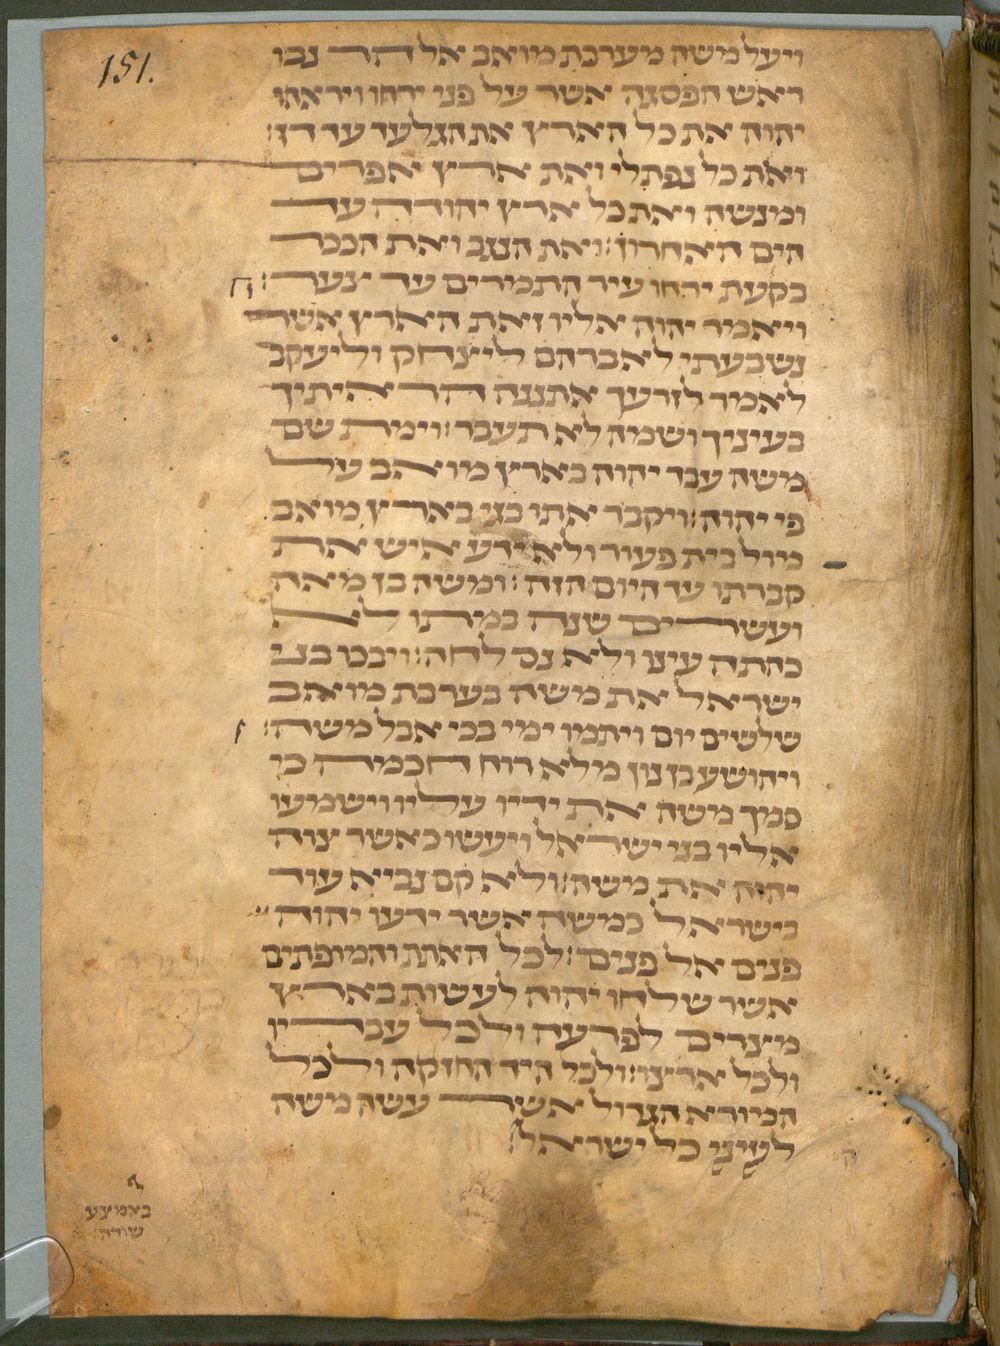 151.
ויעל משה מערבת מואב אל הר נבו
ראש הפסגה אשר על פני ירחו ויראהו
יהוה את כל הארץ את הגלעד עד דן:
ואת כל נפתלי ואת ארץ אפרים
ומנשה ואת כל ארץ יהודה עד
הים האחרון: ואת הנגב ואת הככר
בקעת ירחו עיר התמרים עד צער:
ויאמר יהוה אליו זאת הארץ אשר
נשבעתי לאברהם ליצחק וליעקב
לאמר לזרעך אתננה הראיתיך
בעיניך ושמה לא תעבר: וימת שם
משה עבד יהוה בארץ מואב על
פי יהוה: ויקבר אתו בגי בארץ מואב
מול בית פעור ולא ידע איש את
קברתו עד היום הזה: ומשה בן מאה
ועשרים שנה במתו לא
כהתה עינו ולא נס לחה: ויבכו בני
ישראל את משה בערבת מואב
שלשים יום ויתמו ימי בכי אבל משה:
ויהושע בן נון מלא רוח חכמה כי
סמך משה את ידיו עליו וישמעו
אליו בני ישראל ויעשו כאשר צוה
יהוה את משה: ולא קם נביא עוד
בישראל כמשה אשר ידעו יהוה
פנים אל פנים: לכל האתת והמופתים
אשר שלחו יהוה לעשות בארץ
מצרים לפרעה ולכל עבדיו
ולכל ארצו: ולכל היד החזקה ולכל
המורא הגדול אשר עשה משה
לעיני כל ישראל
באמצע
שורה